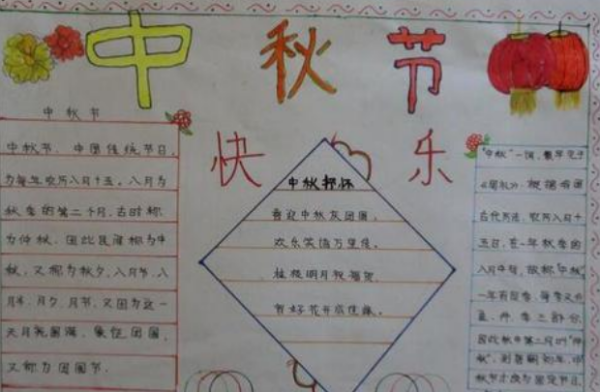 中秋节
快乐
中秋节
中秋节,中国传统节日,
为每年农历八月十五。八月为
秋季的第二个月,古时称
为仲秋,因此民间称为中
秋,又称为秋夕,八月节,八
月半,月夕,月节,又因为这一
天月亮圆满,象征团圆,
又称为团圆节。
中秋抒怀
喜迎中秋庆团圆,
欢乐笑语万里传。
桂枝明月祝福贺,
育好花开
"中秋"一词,最早见于
《周礼》。根据我国
古代历法,农历八月十
五日,在一年秋季的
八月中旬,故称"中秋"
一年有四季,每季又分
孟、仲、季三部分,
因秋中第二月叫"仲
秋",到唐朝初年,中
秋节才成为固定节日